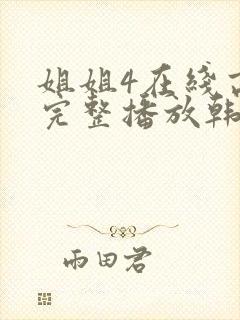 姐姐4在线
完整播放韩
雨田君